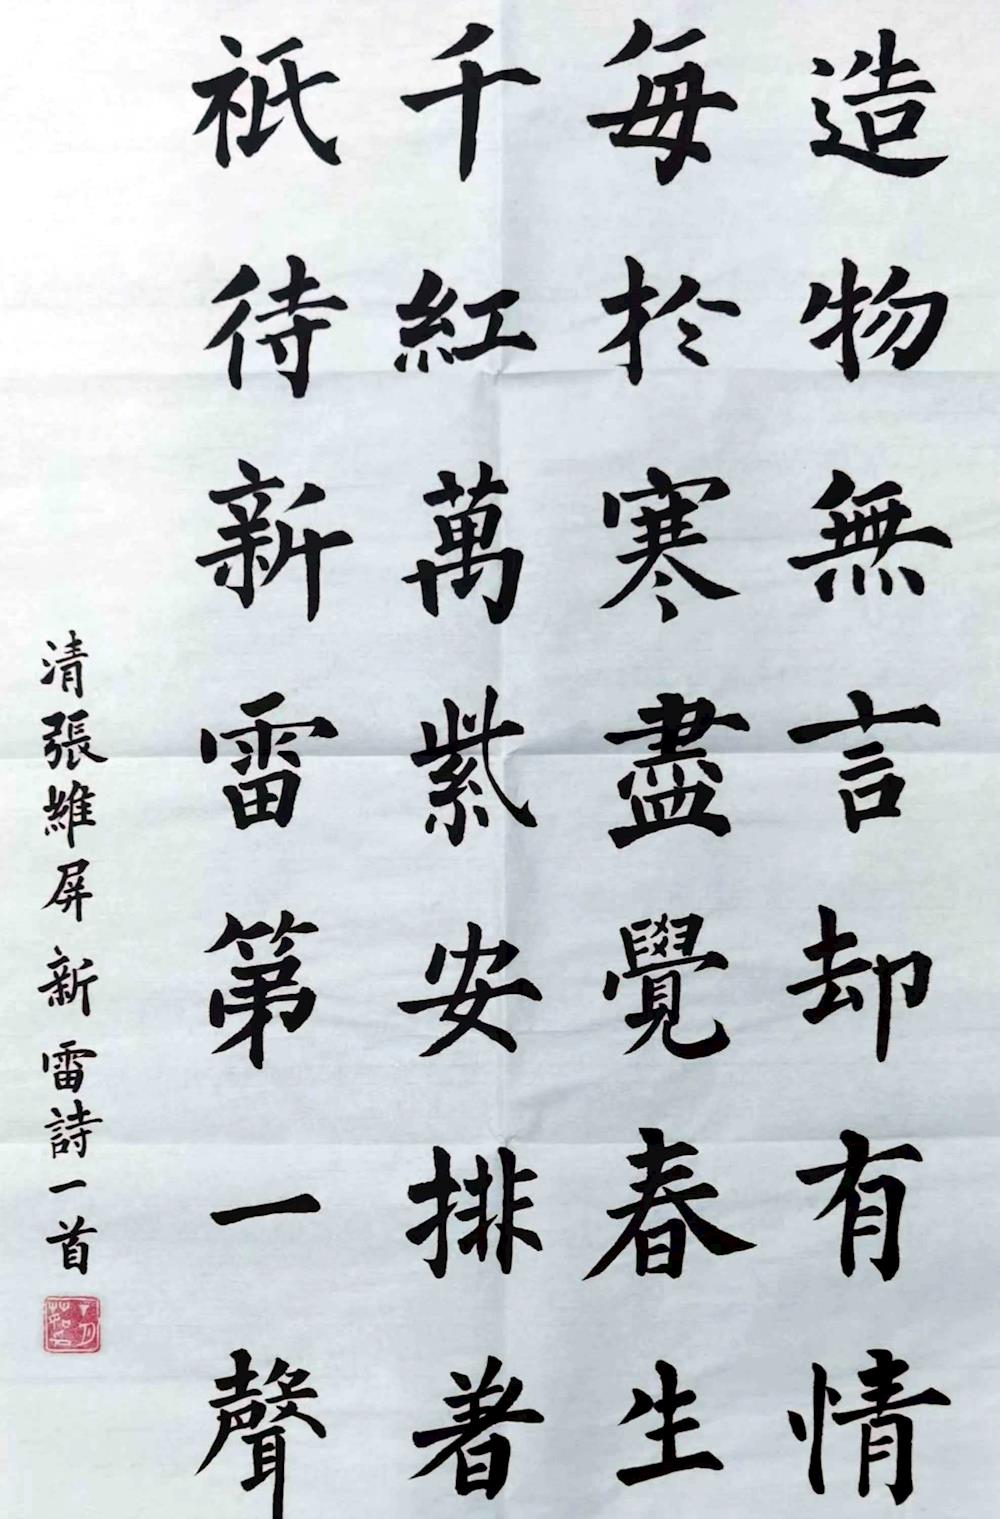 造物無言却有情
每於寒盡覺春生
千紅萬紫安排著
祇待新雷第一聲
清張維屏新雷詩一首